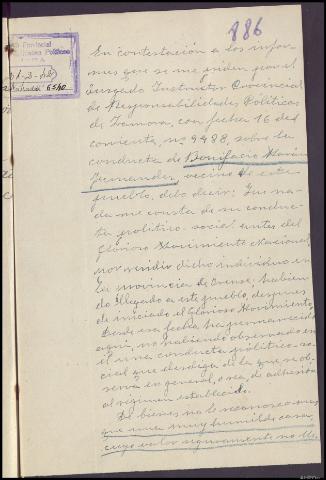 886
Provincial
Políticas
6540
En contestación a los infor-
mes que se me piden por el
Juzgado Instructor Provincial
de Responsabilidades Políticas
de Zamora, con fecha 16 del
corriente, nº 9488, sobre la
conducta de Bonifacio
Fernandez, vecino de este
pueblo, debo decir: Que na-
da me consta de su conduc-
ta politico-social antes del
Glorioso Movimiento Nacional
por residir dicho individuo en
la provincia de Orense, habien-
do llegado a este pueblo, después
de iniciado el Glorioso Movimiento.
Desde esa fecha ha permanecido
aquí, no habiendo observado en
él una conducta politico-so-
cial que desdiga de la que se ob-
serva en general, o sea, de adhesión
al régimen establecido.
De bienes no le
que una muy humilde casa,
cuyo valor seguramente no lle-